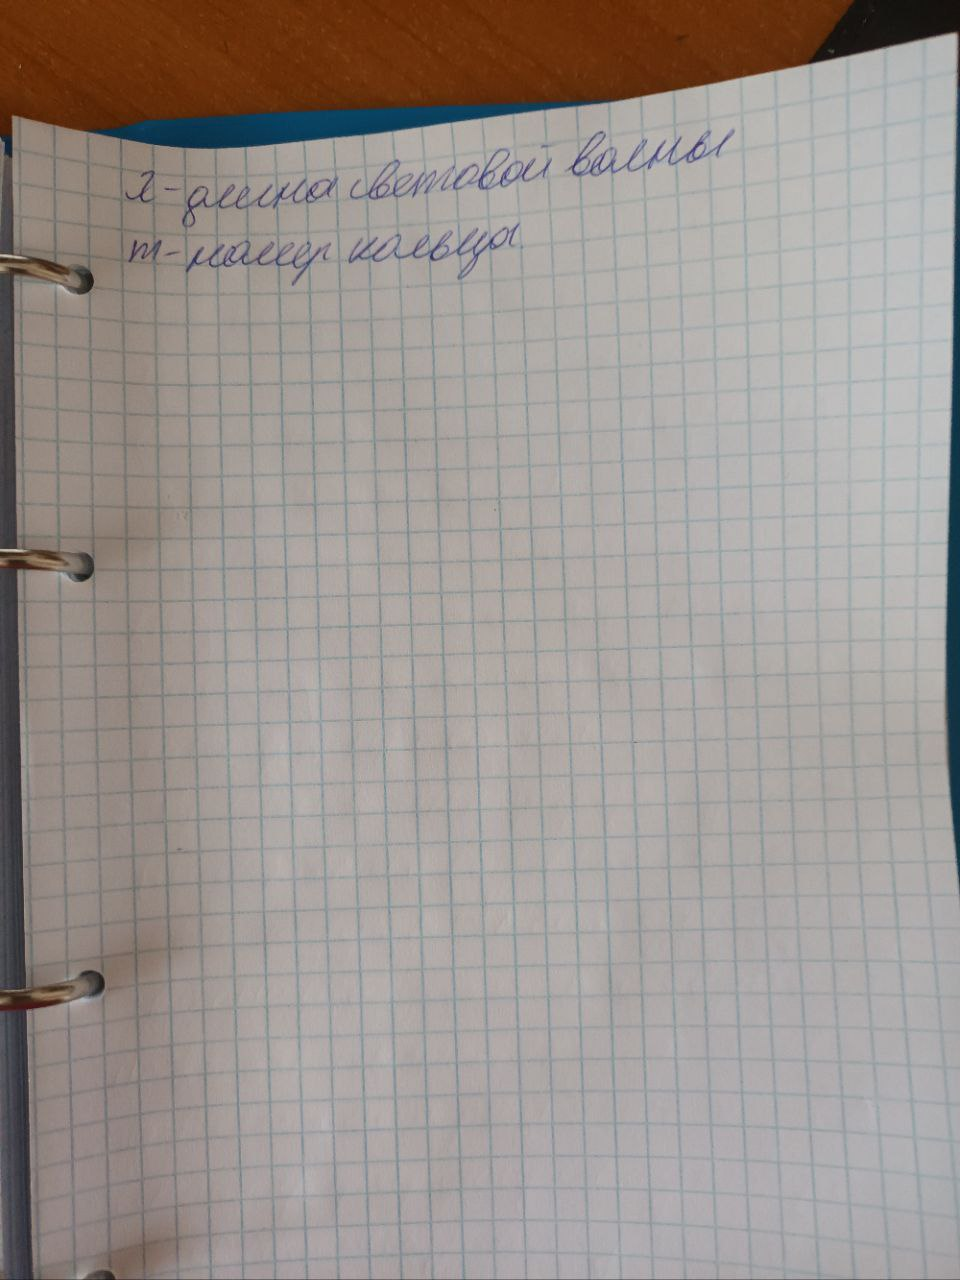 λ - длина световой волны
m - номер кольца